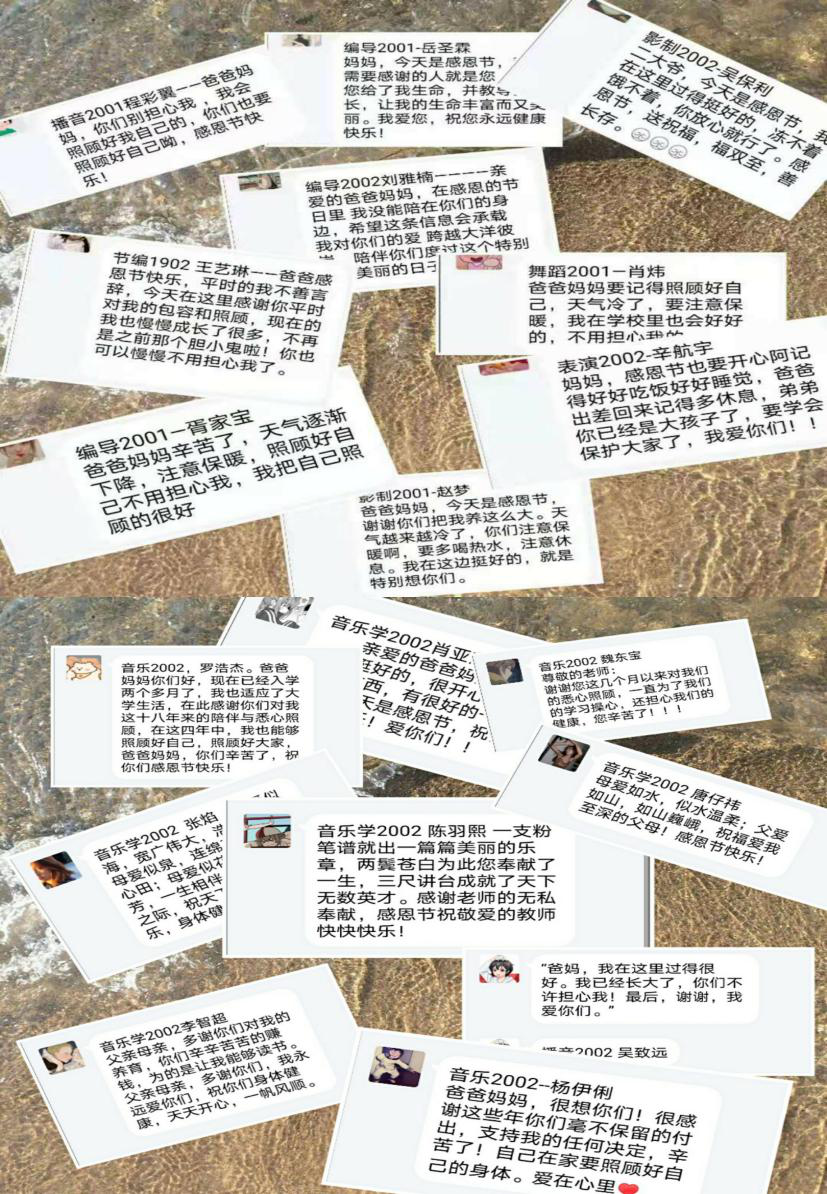 播音2001程彩翼——爸爸妈
妈，你们别担心我，我会
照顾好我自己的，你们也要
照顾好自己呦，感恩节快
乐！
编导2001-岳圣霖
妈妈，今天是感恩节，
需要感谢的人就是您
您给了我生命，并教导
长，让我的生命丰富而又美
丽。我爱您，祝您永远健康
快乐！
影制2002-吴保利
二大爷，今天是感恩节，我
在这里过得挺好的，冻不着
饿不着，你放心就行了。感
恩节，送祝福，福双至，善
长存。
编导2002刘雅楠————亲
爱的爸爸妈妈，在感恩的节
日里 我没能陪在你们的身
边，希望这条信息会承载
我对你们的爱 跨越大洋彼
岸 陪伴你们度过这个特别
美丽的日子
节编1902 王艺琳——爸爸感
恩节快乐，平时的我不善言
辞，今天在这里感谢你平时
对我的包容和照顾，现在的
我也慢慢成长了很多，不再
是之前那个胆小鬼啦！你也
可以慢慢不用担心我了。
舞蹈2001—肖炜
爸爸妈妈要记得照顾好自
己，天气冷了，要注意保
暖，我在学校里也会好好
的，不用担心我的
表演2002-辛航宇
妈妈，感恩节也要开心阿记
得好好吃饭好好睡觉，爸爸
出差回来记得多休息，弟弟
你已经是大孩子了，要学会
保护大家了，我爱你们！！
编导2001—胥家宝
爸爸妈妈辛苦了，天气逐渐
下降，注意保暖，照顾好自
己不用担心我，我把自己照
顾的很好
影制2001-赵梦
爸爸妈妈，今天是感恩节，
谢谢你们把我养这么大。天
气越来越冷了，你们注意保
暖啊，要多喝热水，注意休
息。我在这边挺好的，就是
特别想你们。
音乐学2002肖亚
亲爱的爸爸妈
挺好的，很开心
西，有很好的一
天是感恩节，祝
！爱你们！！
音乐2002，罗浩杰。爸爸
妈妈你们好，现在已经入学
两个多月了，我也适应了大
学生活，在此感谢你们对我
这十八年来的陪伴与悉心照
顾，在这四年中，我也能够
照顾好自己，照顾好大家，
爸爸妈妈，你们辛苦了，祝
你们感恩节快乐！
音乐2002 魏东宝
尊敬的老师：
谢谢您这几个月以来对我们
的悉心照顾，一直为了我们
的学习操心，还担心我们的
健康，您辛苦了！！！
音乐学2002 唐仔祎
母爱如水，似水温柔；父爱
如山，如山巍峨，祝福爱我
至深的父母！感恩节快乐！
音乐学2002 张焰
海，宽广伟大；
母爱似泉，连绵
心田；母爱似花
芳，一生相伴
之际，祝天下
乐，身体健
音乐学2002 陈羽熙 一支粉
笔谱就出一篇篇美丽的乐
章，两鬓苍白为此您奉献了
一生，三尺讲台成就了天下
无数英才。感谢老师的无私
奉献，感恩节祝敬爱的教师
快快快乐！
“爸妈，我在这里过得很
好。我已经长大了，你们不
许担心我！最后，谢谢，我
爱你们。”
播音2002 吴致远
音乐学2002李智超
父亲母亲，多谢你们对我的
养育，你们辛辛苦苦的赚
钱，为的是让我能够读书。
父亲母亲，多谢你们，我永
远爱你们，祝你们身体健
康，天天开心，一帆风顺。
音乐2002--杨伊俐
爸爸妈妈，很想你们！很感
谢这些年你们毫不保留的付
出，支持我的任何决定，辛
苦了！自己在家要照顾好自
己的身体。爱在心里❤